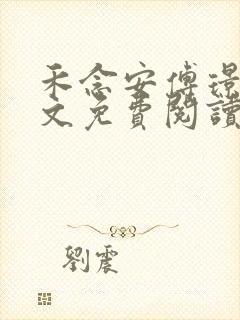 禾念安傅璟
文免費閱讀
劉震